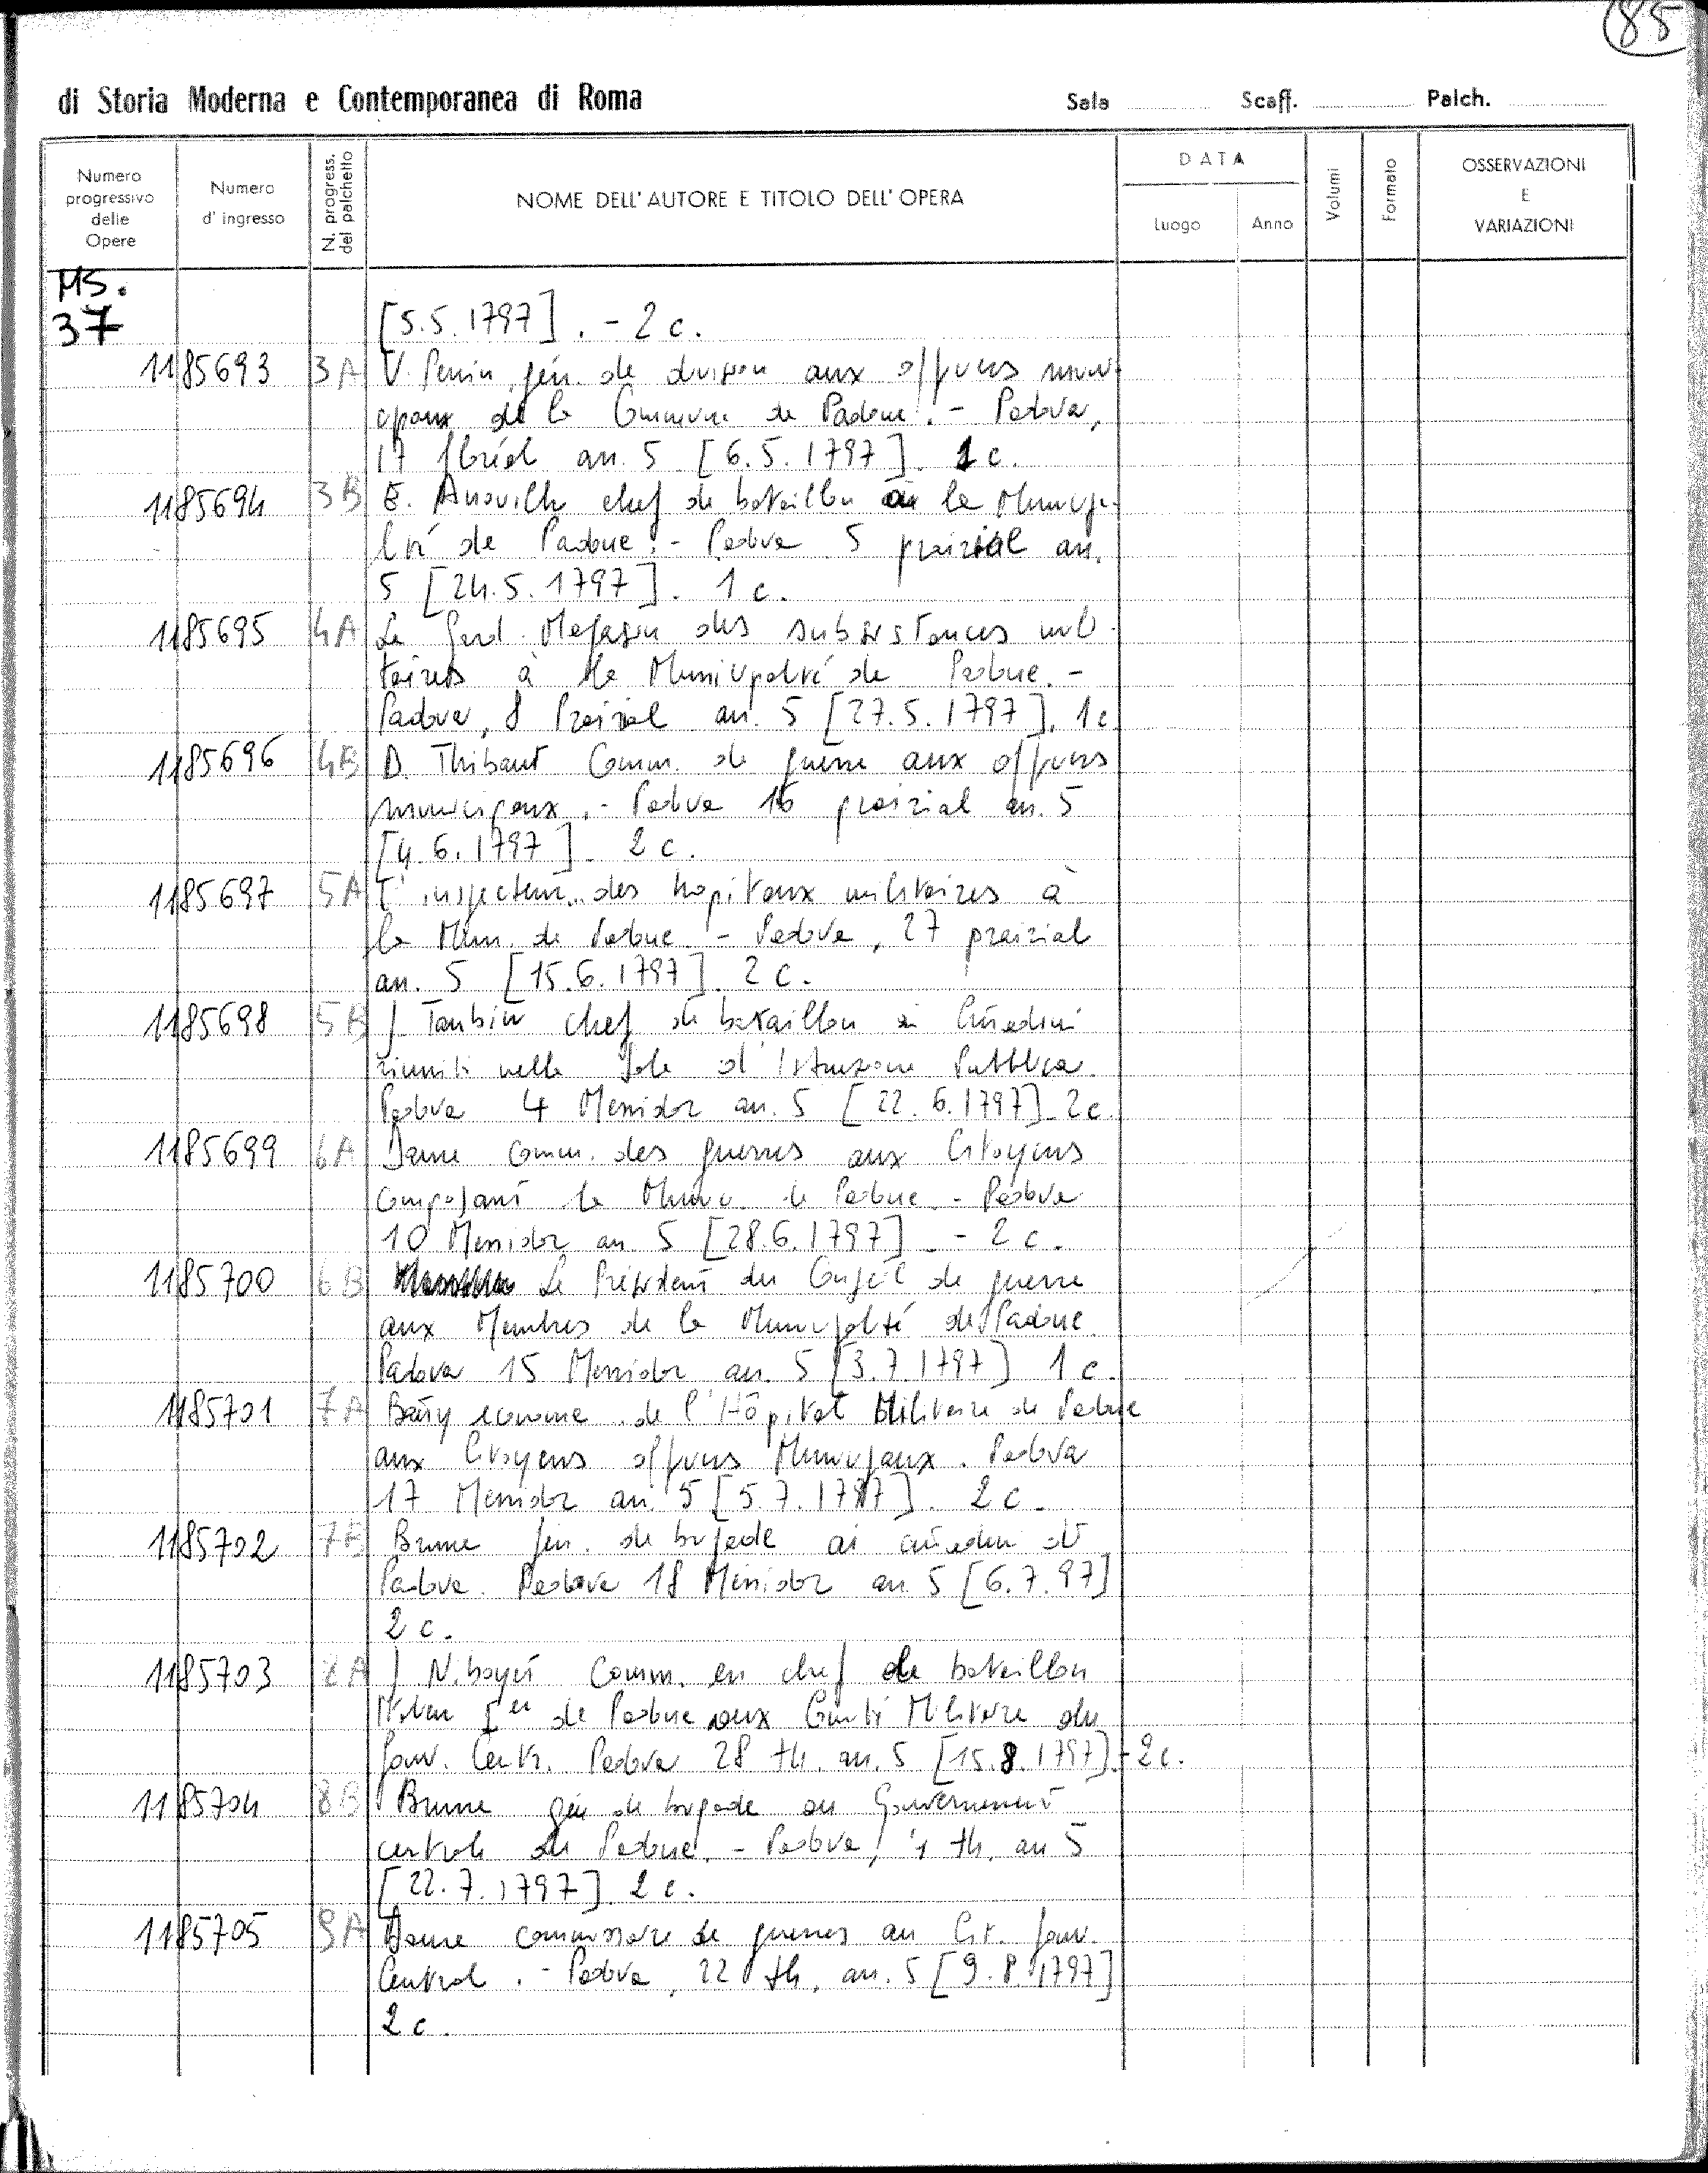 85
di Storia Moderna e Contemporanea di Roma Sala Scaff. Palch.
Numero progressivo delle Opere
Numero d' ingresso
N. progress. del palchetto
NOME DELL' AUTORE E TITOLO DELL' OPERA
DATA
Luogo Anno
Volumi
Formato
OSSERVAZIONI E VARIAZIONI
MS.
37 [5.5.1797]. - 2 c.
1185693 3A V. Perrin, gén. de division aux officiers muni-
cipaux de la Commune de Padoue. - Padova,
17 an. 5 [6.5.1797]. 1 c.
1185694 3B E. Anoville chef de bataillon à la Municipa-
lité de Padoue. - Padova 5 prairial an.
5 [24.5.1797]. 1 c.
1185695 4A Le Gard. Magasin des subsistances mili-
taires à la Municipalité de Padoue. -
Padova, 8 Prairial an. 5 [27.5.1797]. 1 c
1185696 4B D. Thibaut Comm. de guerre aux officiers
municipaux. - Padova 16 prairial an. 5
[4.6.1797]. 2 c.
1185697 5A L'inspecteur des hopitaux militaires à
la Mun. de Padoue. - Padova, 27 prairial
an. 5 [15.6.1797]. 2 c.
1185698 5B J. Taubin chef de bataillon ai Cittadini
riuniti nella Sala d'Istruzione Pubblica.
Padova 4 Messidor an. 5 [22.6.1797]. 2 c
1185699 6A comm. des guerres aux Citoyens
composant la Munic. de Padoue. - Padova
10 Messidor an 5 [28.6.1797]. - 2 c.
1185700 6B Le Président du Conseil de guerre
aux Membres de la Municipalité de Padoue.
Padova 15 Messidor an. 5 [3.7.1797] 1 c.
1185701 7A économe de l'Hôpital Militaire de Padoue
aux Citoyens officiers Municipaux. Padova
17 Messidor an. 5 [5.7.1797]. 2 c.
1185702 7B Brune gén. de brigade ai cittadini di
Padova. Padova 18 Messidor an. 5 [6.7.97]
2 c.
1185703 8A J. N. boyer Comm. en chef de bataillon
de Padoue aux Militaire du
Gouv. Centr. Padova 28 th. an. 5 [15.8.1797]. - 2 c.
1185704 8B Brune gén de brigade au Gouvernement
centrale de Padoue. - Padova, 4 th. an 5
[22.7.1797]. 2 c.
1185705 9A commissaire de guerres au Cit. Gouv.
Central. - Padova, 22 th. an. 5 [9.8.1797]
2 c.